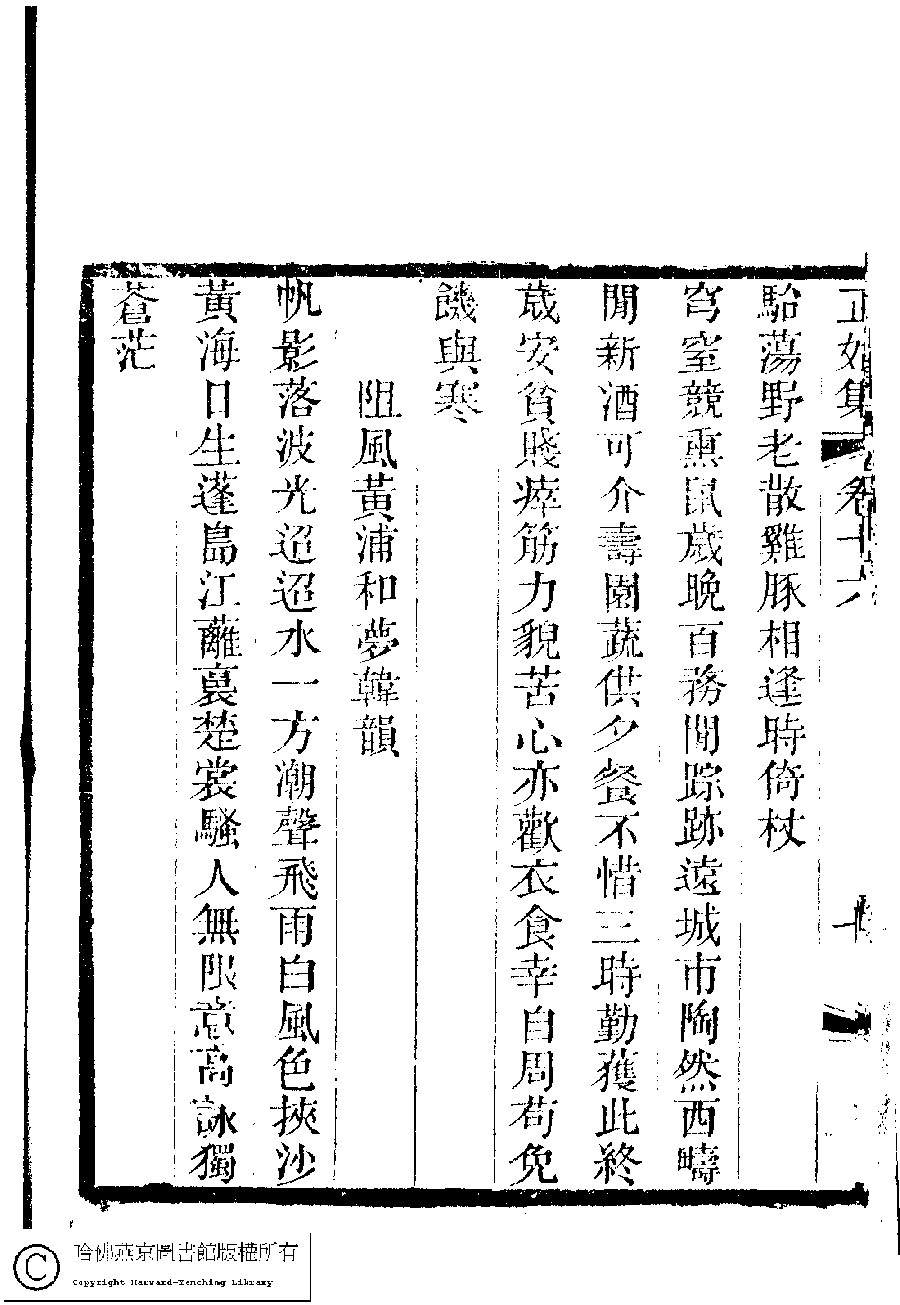 正始集 卷十六 十
駘蕩野老散雞豚相逢時倚杖
穹窒競熏鼠歲晚百務閒踪跡遠城市陶然西疇
閒新酒可介壽園蔬供夕餐不惜三時勤獲此終
歲安貧賤瘁筋力貌苦心亦歡衣食幸自周苟免
饑與寒
阻風黃浦和夢韓韻
帆影落波光迢迢水一方潮聲飛雨白風色挾沙
黃海日生蓬島江蘺裛楚裳騷人無限意高詠獨
蒼茫
哈佛燕京圖書館版權所有
Copyright Harvard-Yenching Library